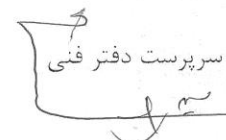 سرپرست دفتر فنی